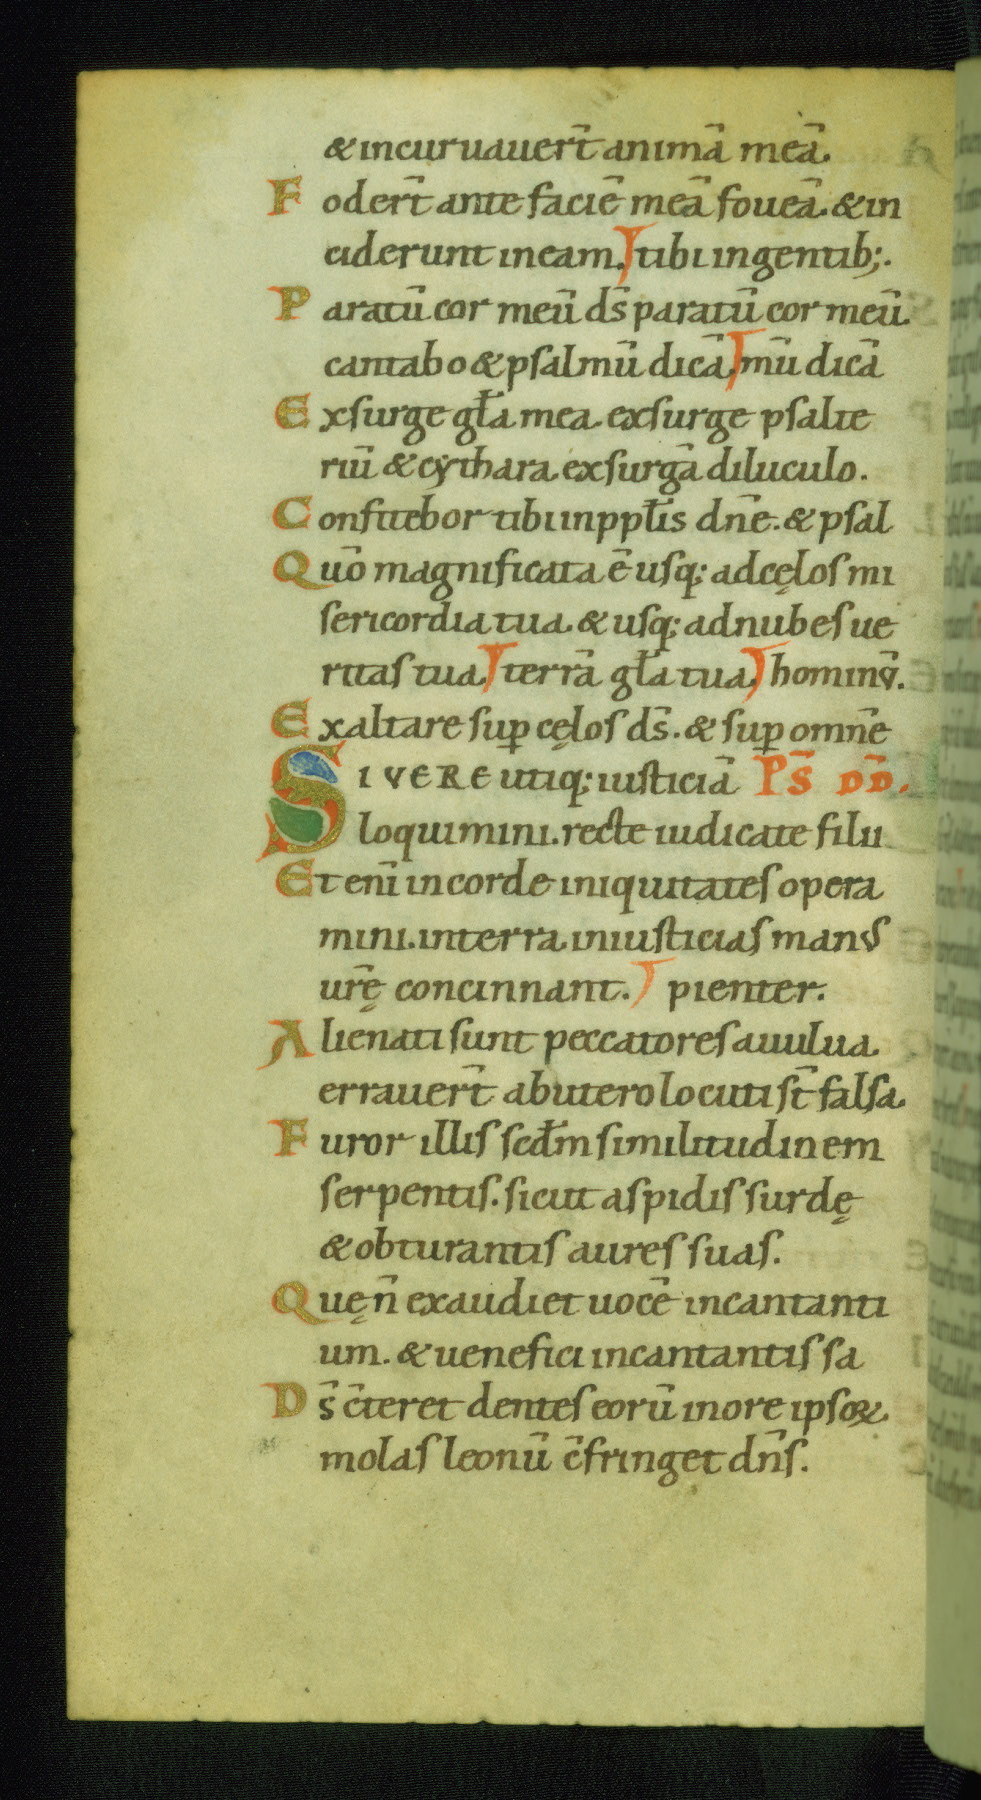 &incuruauer̄t animā meā.
Foder̄t ante faciē meā foueā. &in
ciderunt ineam. tibi ingentib;.
Paratū cor meū ds̄ paratū cor meū.
cantabo & psalmū dicā. mū dicā
Exsurge gl̄a mea. exsurge psalte
riū & cythara. exsurgā diluculo.
Confitebor tibi inppl̄is dn̄e. & psal
Quō magnificata ē usq; adcęlos mi
sericordia tua. & usq; adnubes ue
ritas tua. terrā gl̄a tua. hominū.
Exaltare suꝑ cęlos ds̄. & suꝑ omn̄e
SI VERE utiq; iusticiā PS̄ DD̄.
loquimini. recte iudicate filii
Et enī incorde iniquitates opera
mini. interra iniusticias manus
ur̄ę concinnant. pienter.
Alienati sunt peccatores auulua.
errauer̄t abutero locuti st̄ falsa.
Furor illis scd̄m similitudinem
serpentis. sicut aspidis surdę
& obturantis aures suas.
Quę n̄ exaudiet uocē incantanti
um. & uenefici incantantis sa
Ds̄ c̄teret dentes eorū inore ipsoꝝ.
molas leonū c̄fringet dn̄s.